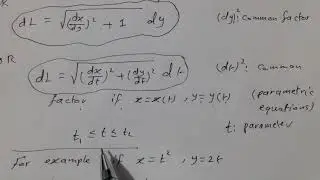 dL = √((dx/dy)² + 1) dy (dy)²: common factor
dL = √((dx/dt)² + (dy/dt)²) dt (dt)²: common
factor if x = x(t), y = y(t) (parametric equations)
t₁ ≤ t ≤ t₂ t: parameter
For example if x = t², y = 2t